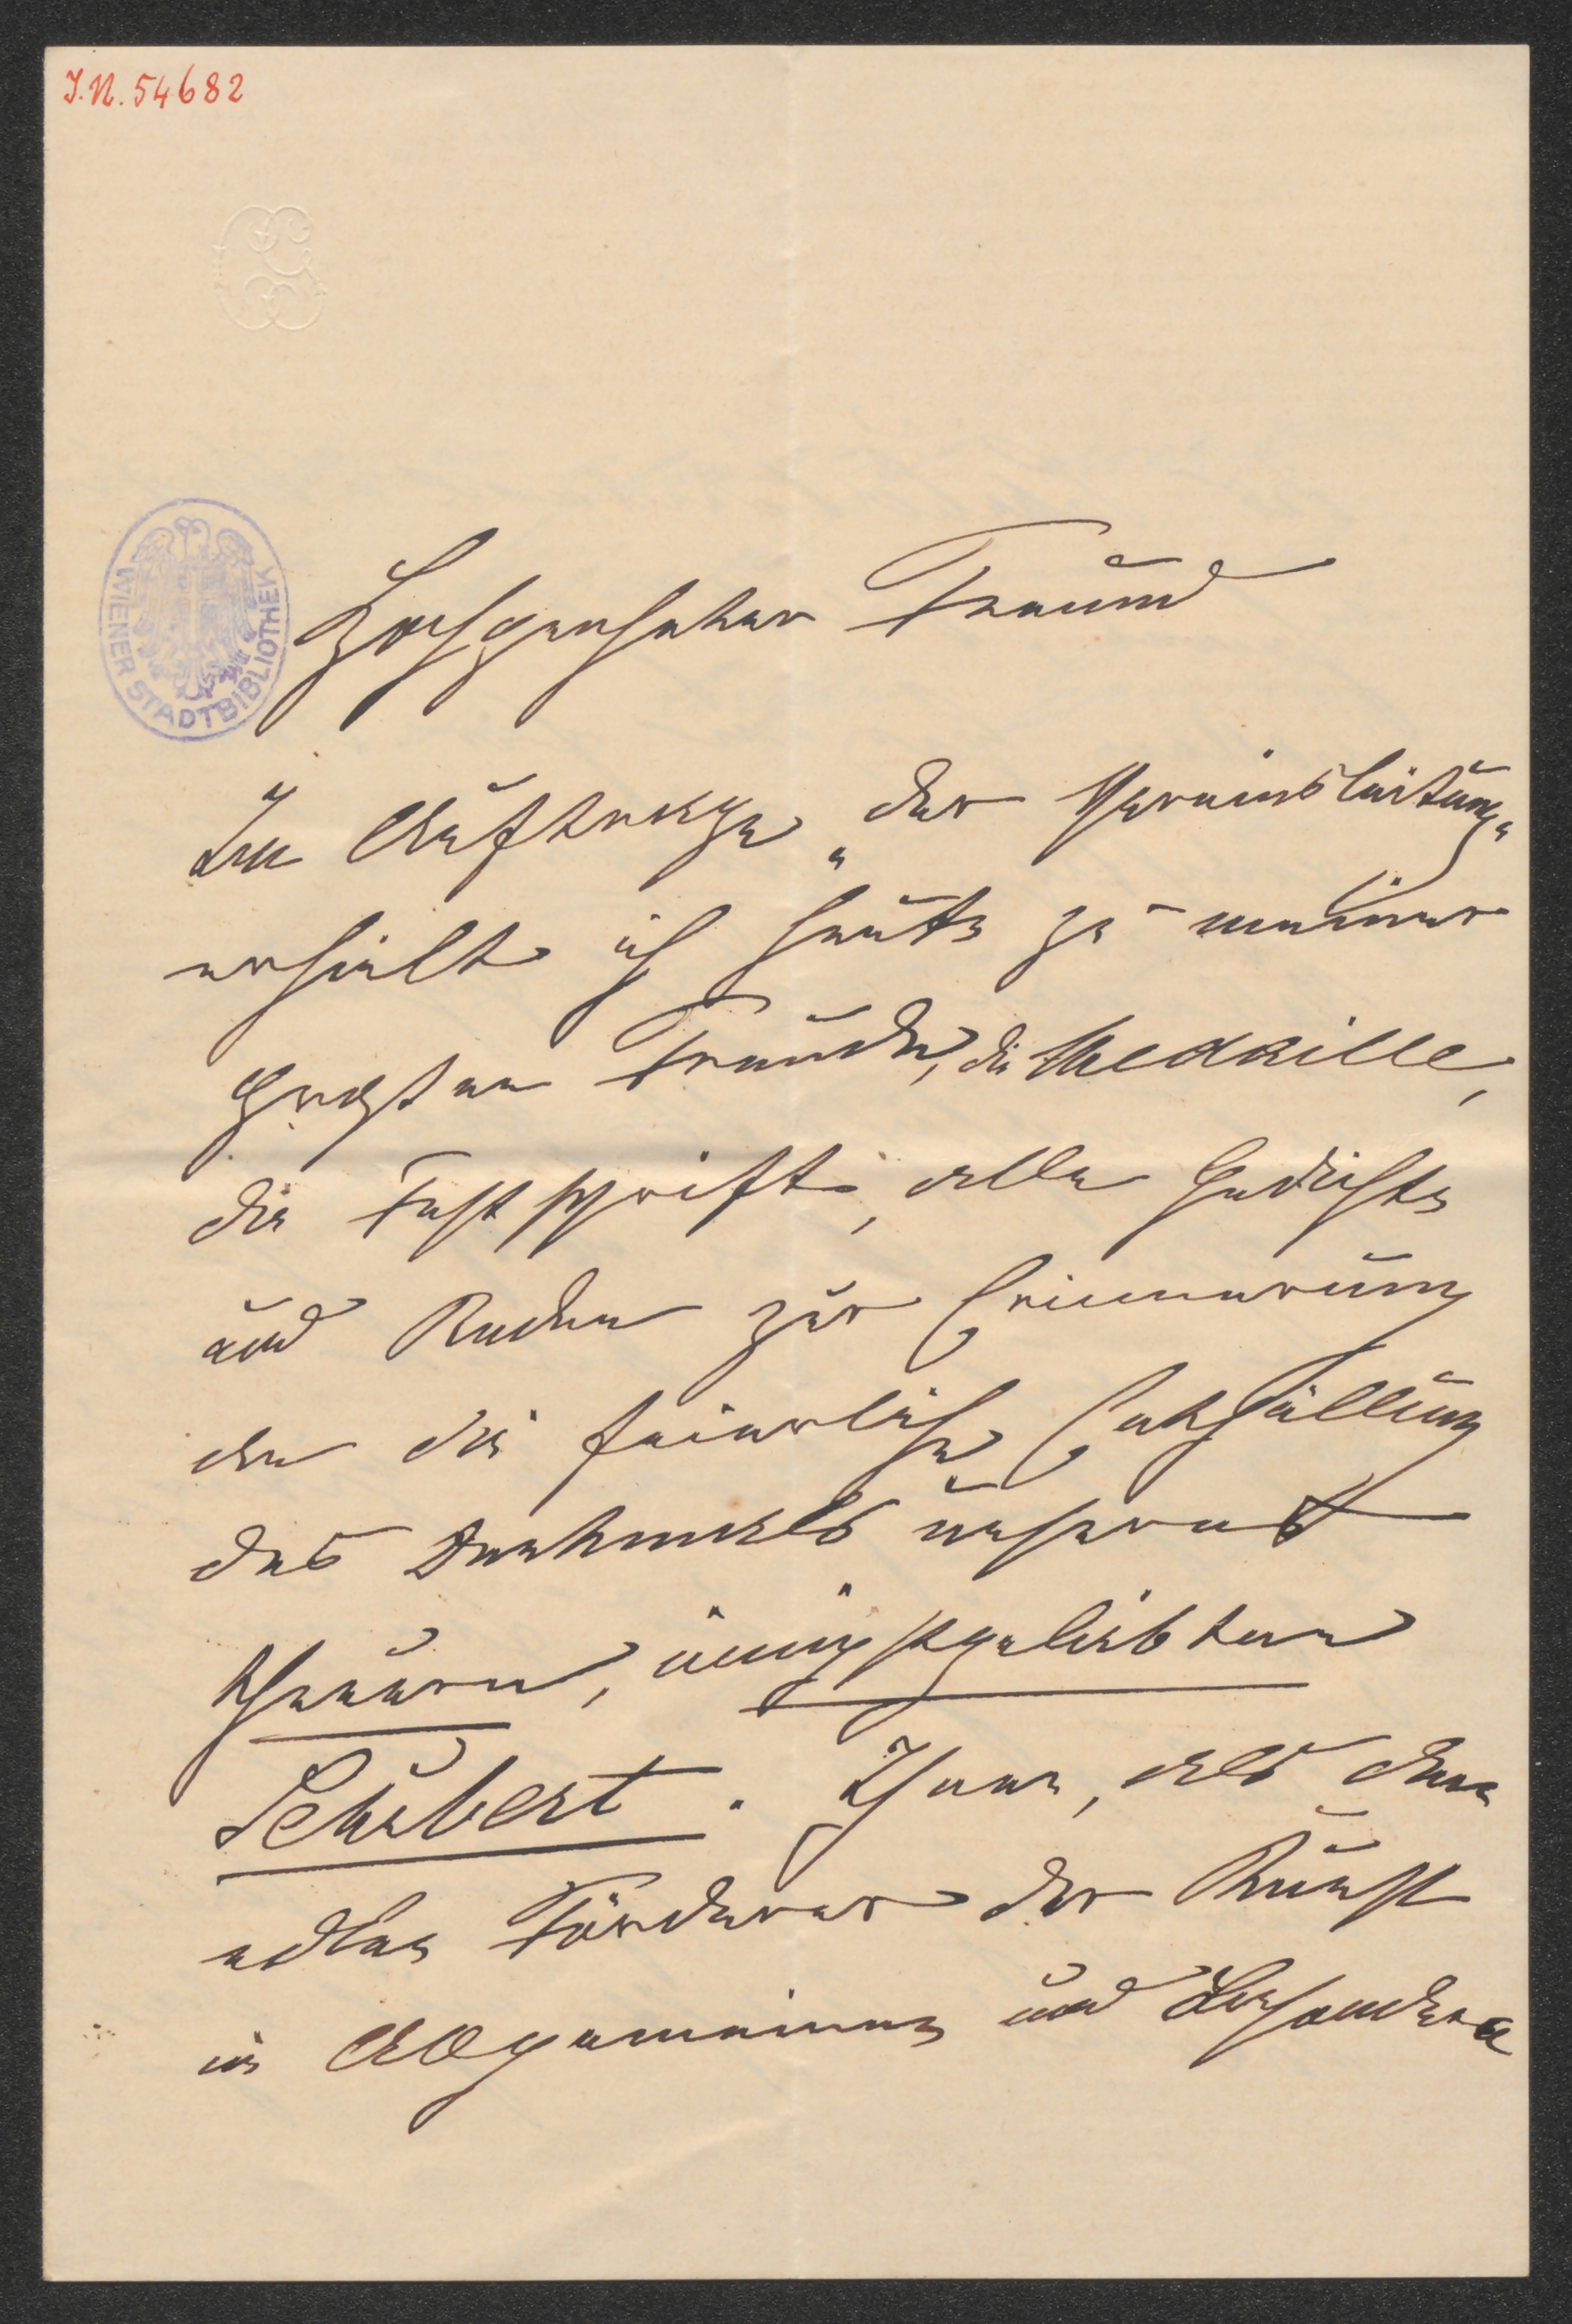 I.N. 54682
WIENER STADTBIBLIOTHEK
Hochgeehrter Freund
Im Auftrage „der Vereinsleitung“
erhielt ich heute zu meiner
großen Freude, die Medaille,
die Festschrift, alle Gedichte
und Reden zur Erinnerung
an die feierliche Enthüllung
des Denkmals unseres
theuern, innigstgeliebten
Schubert. Ihnen, als dem
edlen Förderer der Kunst
im Allgemeinen und Besondern